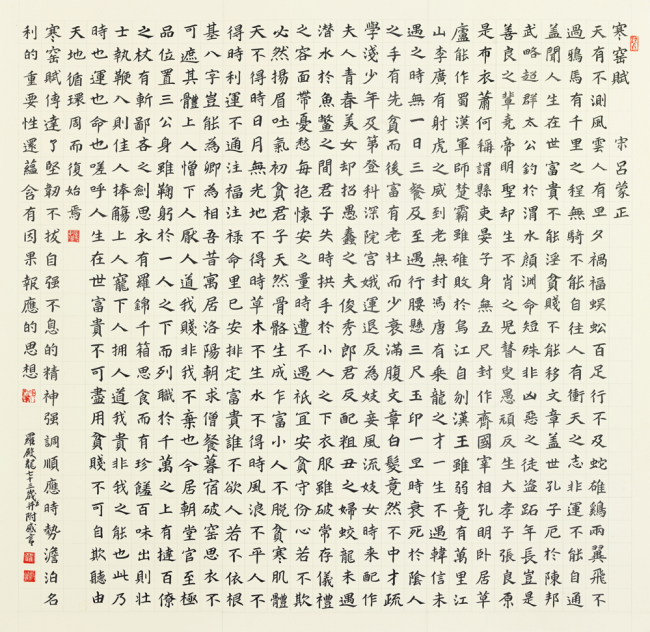 寒窑賦 宋 呂蒙正
天有不測風雲人有旦夕禍福蜈蚣百足行不及蛇雄鷄兩翼飛不
過鴉馬有千里之程無騎不能自往人有衝天之志非運不能自通
蓋聞人生在世富貴不能淫貧賤不能移文章蓋世孔子厄於陳邦
武略超群太公釣於渭水顏淵命短殊非凶惡之徒盜跖年長豈是
善良之輩堯帝明聖却生不肖之兒瞽叟愚頑反生大孝子張良原
是布衣蕭何稱謂縣吏晏子身無五尺封作齊國宰相孔明卧居草
廬能作蜀漢軍師楚霸雖雄敗於烏江自刎漢王雖弱竟有萬里江
山李廣有射虎之威到老無封馮唐有乘龍之才一生不遇韓信未
遇之時無一日三餐及至遇行腰懸三尺玉印一旦時衰死於陰人
之手有先貧而後富有老壯而少衰滿腹文章白髮竟然不中才疏
學淺少年及第登科深院宮娥運退反為妓妾風流妓女時來配作
夫人青春美女却招愚蠢之夫俊秀郎君反配粗丑之婦蛟龍未遇
潛水於魚鱉之間君子失時拱手於小人之下衣服雖破常存儀禮
之容面帶憂愁每抱懷安之量時遭不遇衹宜安貧守份心若不欺
必然揚眉吐氣初貧君子天然骨骼生成乍富小人不脫貧寒肌體
天不得時日月無光地不得時草木不生水不得時風浪不平人不
得時利運不通注福注祿命里已安排定富貴誰不欲人若不依根
基八字豈能為卿為相吾昔寓居洛陽朝求僧餐暮宿破窑思衣不
可遮其體上人憎下人厭人道我賤非我不棄也今居朝堂官至極
品位置三公身雖鞠躬於一人之下而列職於千萬之上有撻百僚
之杖有斬鄙吝之劍思衣有羅錦千箱思食而有珍饈百味出則壯
士執鞭入則佳人捧觴上人寵下人擁人道我貴非我之能也此乃
時也運也命也嗟呼人生在世富貴不可盡用貧賤不可自欺聽由
天地循環周而復始焉
寒窑賦傳達了堅韌不拔自强不息的精神强調順應時勢澹泊名
利的重要性還蘊含有因果報應的思想
羅殿龍七十三歲并附感言